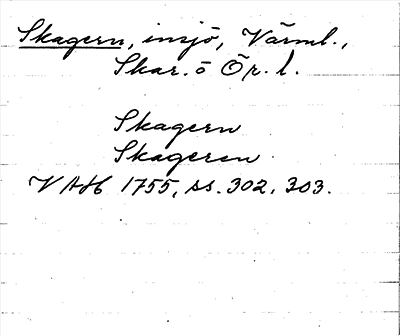 Skagern, insjö, Värml.,
Skar. o Ör. l.
Skagern
Skageren
VAH 1755, ss. 302, 303.